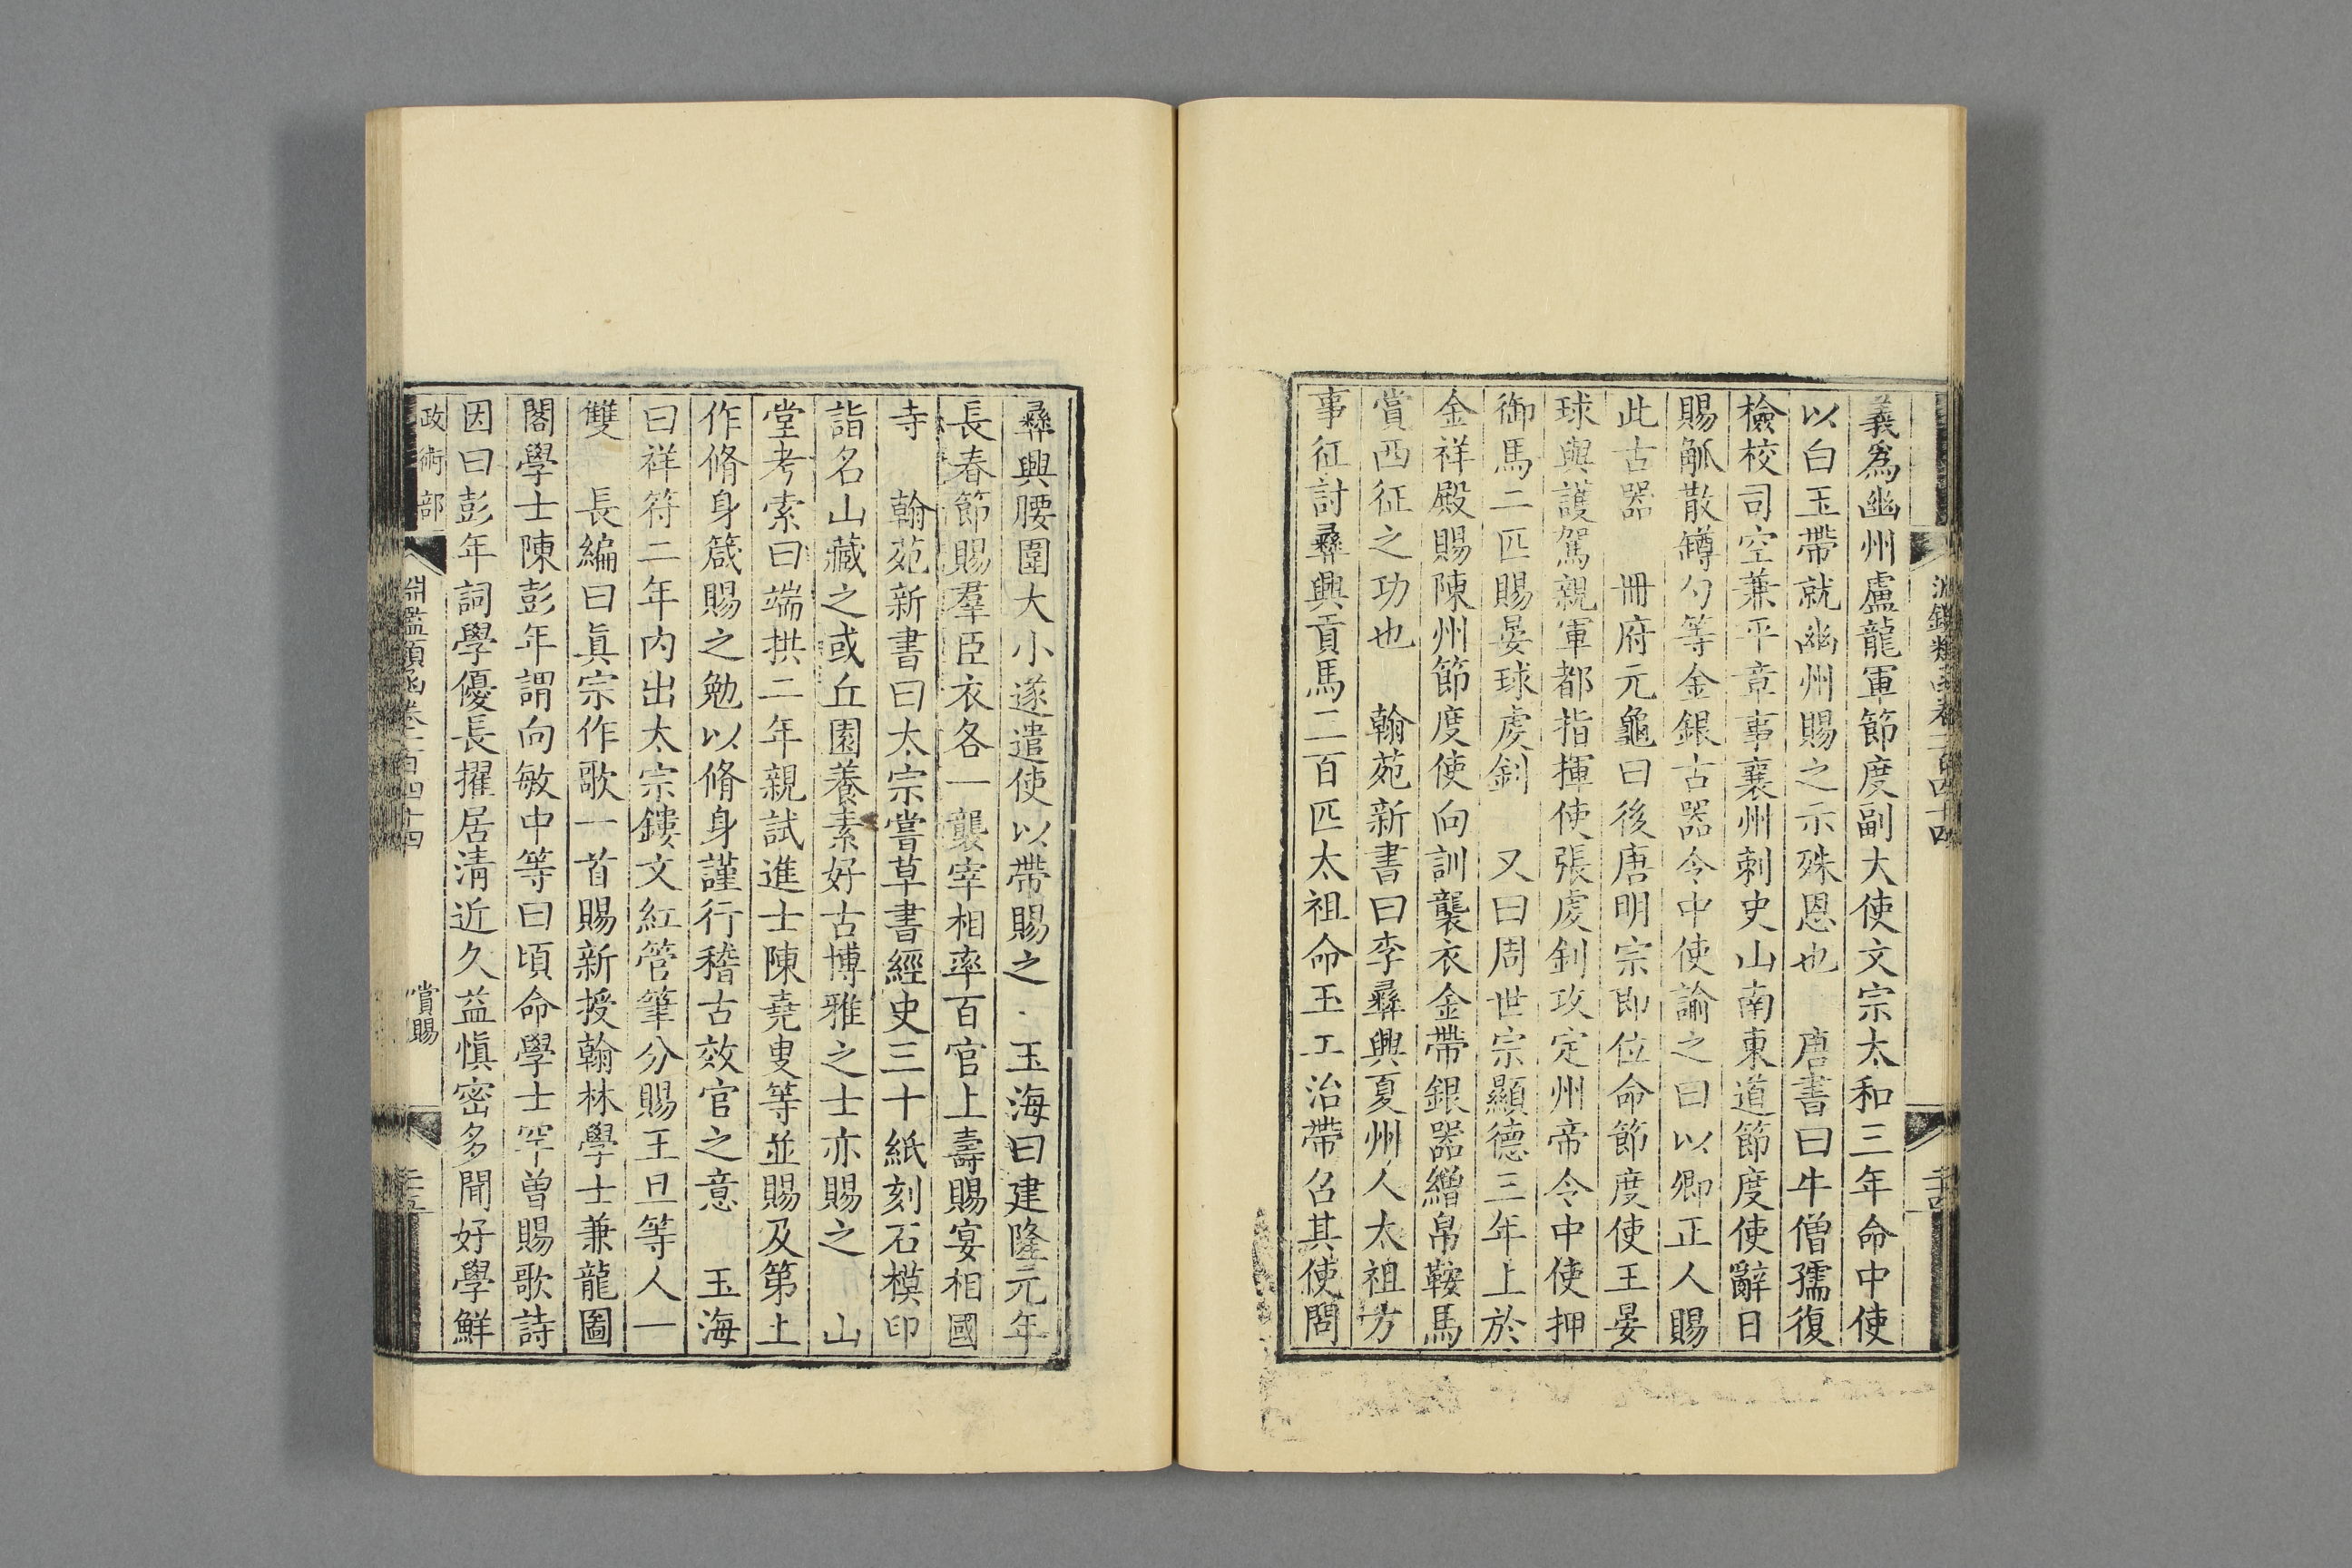 義爲幽州盧龍軍節度副大使文宗太和三年命中使
以白玉帶就幽州賜之示殊恩也　唐書曰牛僧孺復
檢校司空兼平章事襄州刺史山南東道節度使辭日
賜觚散罇勺等金銀古器令中使諭之曰以卿正人賜
此古器　冊府元龜曰後唐明宗即位命節度使王晏
球與護駕親軍都指揮使張虔釗攻定州帝令中使押
御馬二匹賜晏球虔釗　又曰周世宗顯德三年上於
金祥殿賜陳州節度使向訓襲衣金帶銀器繒帛鞍馬
賞西征之功也　翰苑新書曰李彞興夏州人太祖方
事征討彞興貢馬二百匹太祖命玉工治帶召其使問
彞興腰圍大小遂遣使以帶賜之　玉海曰建隆元年
長春節賜羣臣衣各一襲宰相率百官上壽賜宴相國
寺　翰苑新書曰太宗嘗草書經史三十紙刻石模印
詣名山藏之或丘園養素好古博雅之士亦賜之　山
堂考索曰端拱二年親試進士陳堯叟等並賜及第上
作脩身箴賜之勉以脩身謹行稽古效官之意　玉海
曰祥符二年內出太宗鏤文紅管筆分賜王旦等人一
雙　長編曰眞宗作歌一首賜新授翰林學士兼龍圖
閣學士陳彭年謂向敏中等曰頃命學士罕曽賜歌詩
因曰彭年詞學優長擢居淸近久益愼密多聞好學鮮
政術部　淵鑑類函卷二百四十四　賞賜　二十五